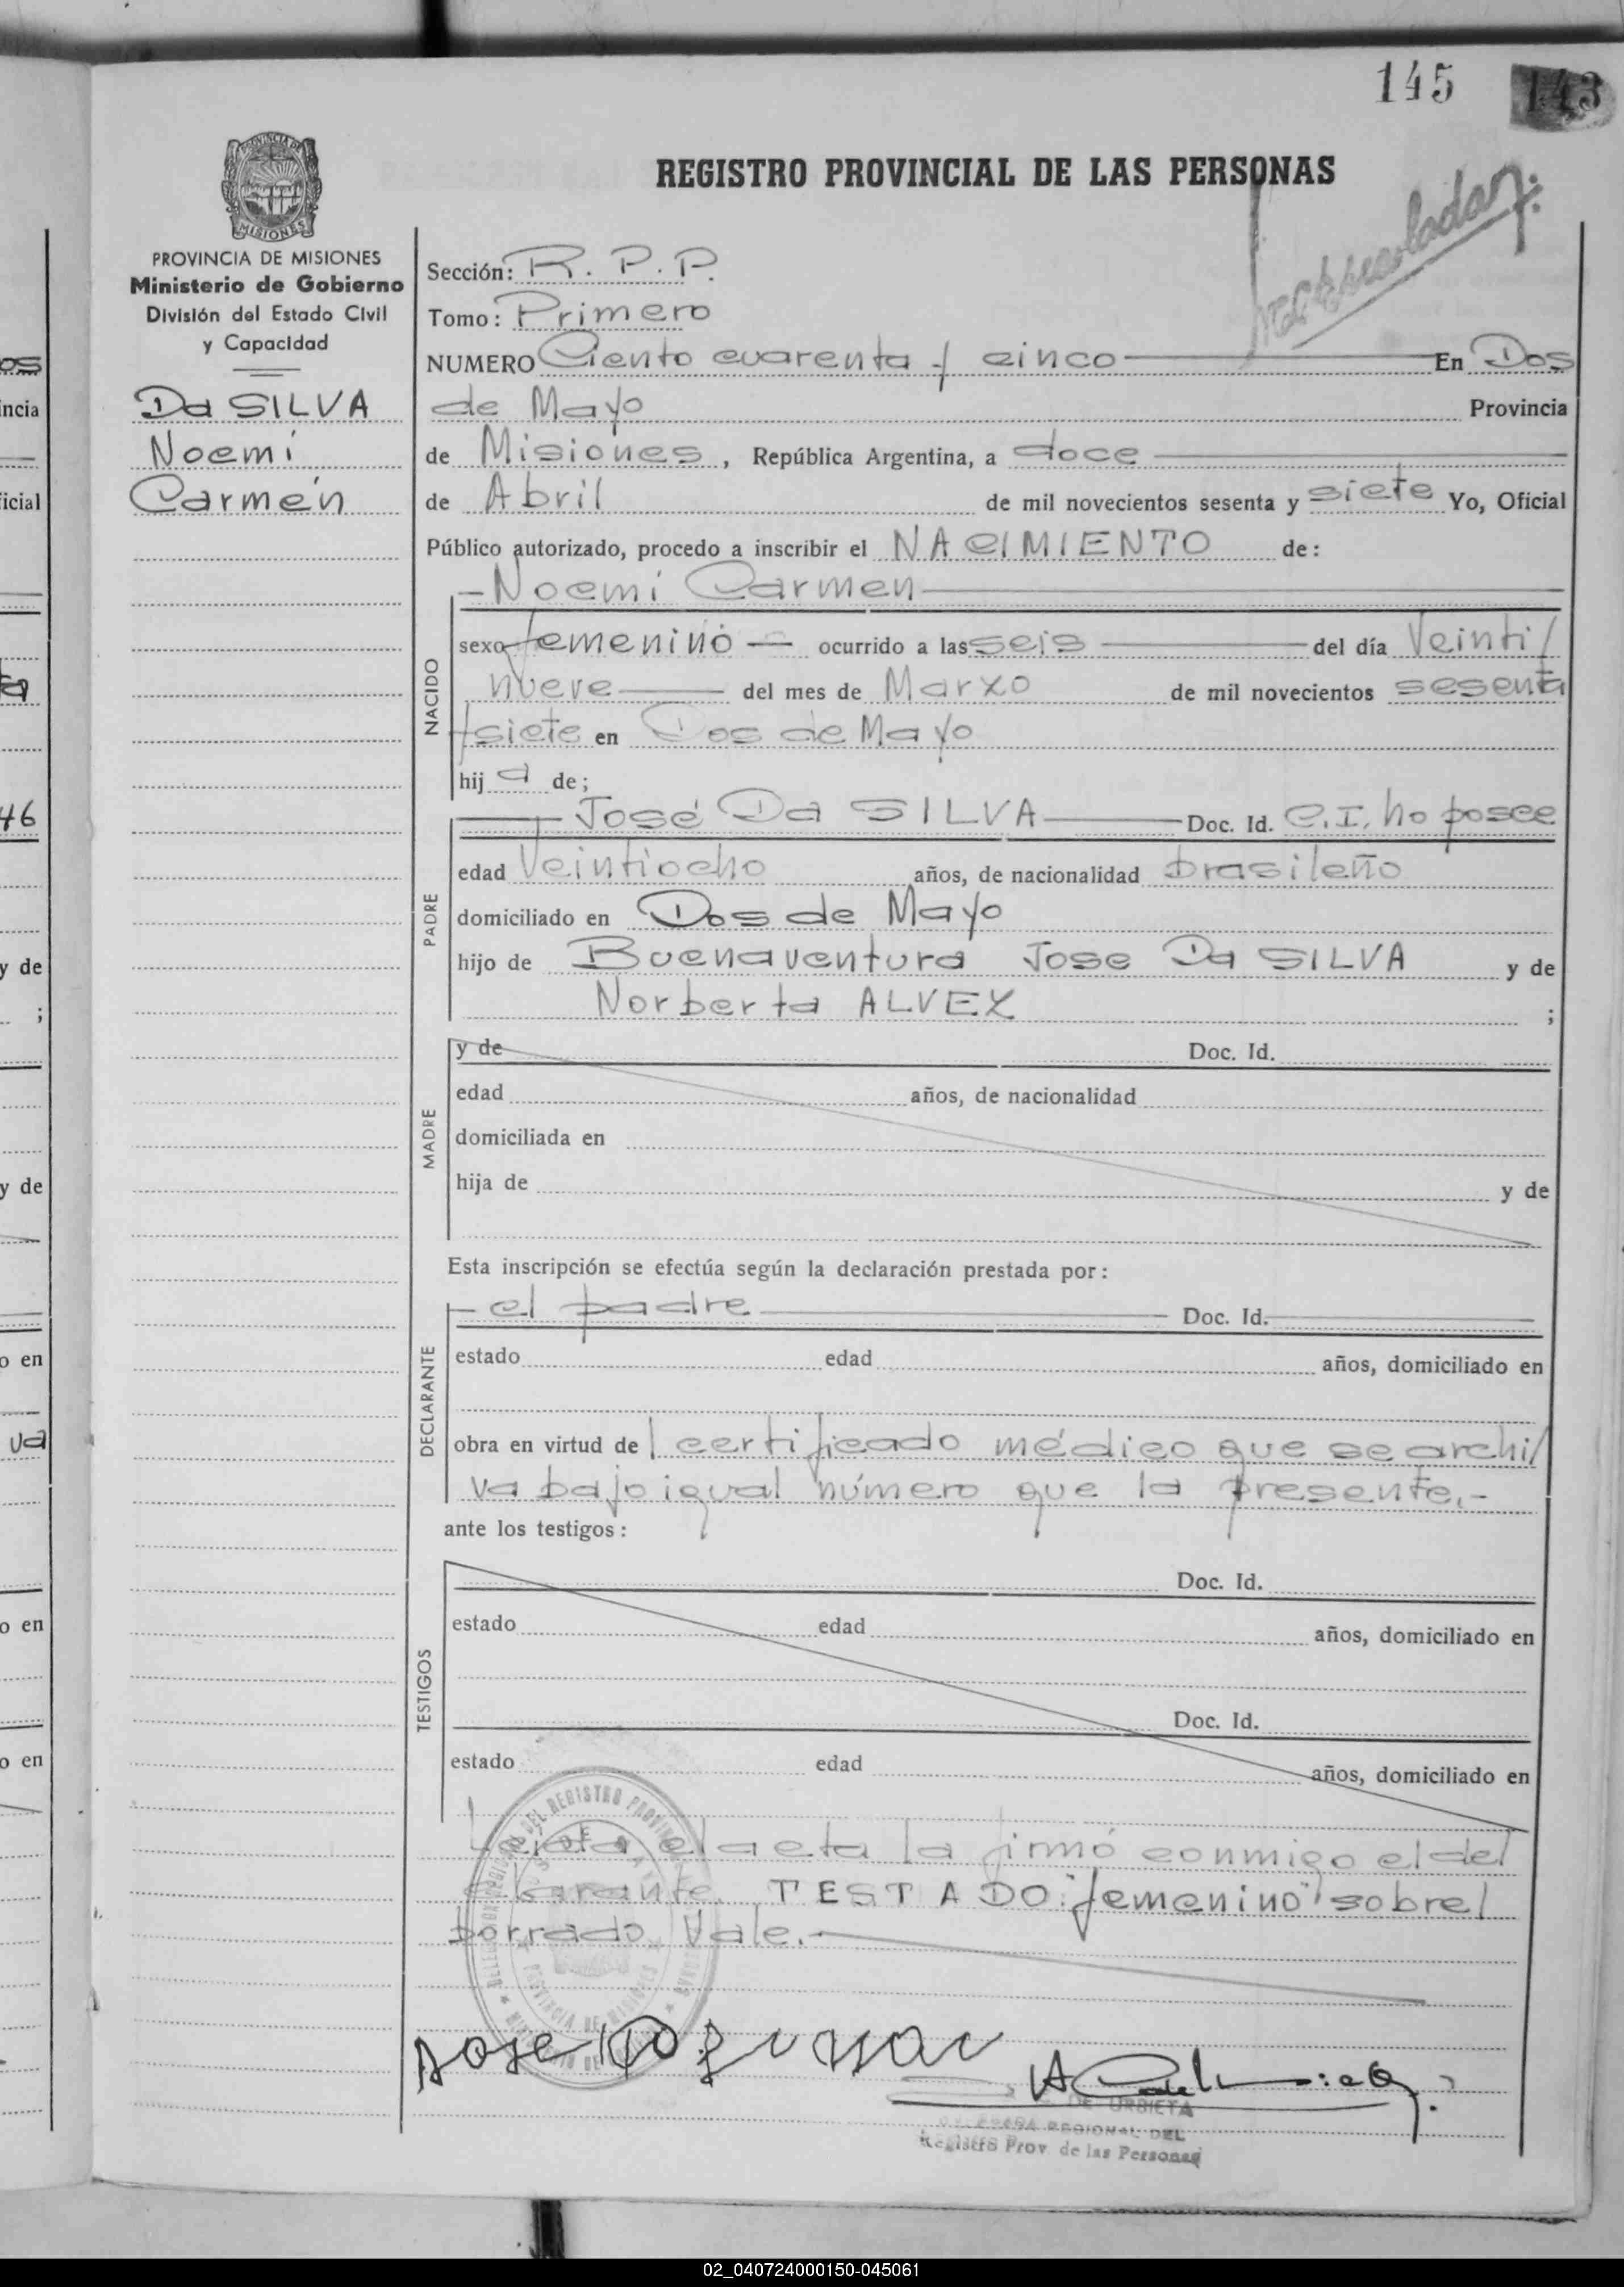 145 143
REGISTRO PROVINCIAL DE LAS PERSONAS
PROVINCIA DE MISIONES
Ministerio de Gobierno
División del Estado Civil
y Capacidad
Da SILVA
Noemi
Carmen
Sección: R. P. P.
Tomo: Primero
NUMERO Ciento cuarenta y cinco En Dos
de Mayo Provincia
de Misiones, República Argentina, a doce
de Abril de mil novecientos sesenta y siete Yo, Oficial
Público autorizado, procedo a inscribir el NACIMIENTO de:
- Noemi Carmen
NACIDO
sexo femenino — ocurrido a las seis del día Veinti/
nueve del mes de Marzo de mil novecientos sesenta
y siete en Dos de Mayo
hij a de;
PADRE
José Da SILVA Doc. Id. C.I. no posee
edad Veintiocho años, de nacionalidad brasileño
domiciliado en Dos de Mayo
hijo de Buenaventura Jose Da SILVA y de
Norberta ALVEZ ;
MADRE
y de Doc. Id.
edad años, de nacionalidad
domiciliada en
hija de y de
Esta inscripción se efectúa según la declaración prestada por:
DECLARANTE
- el padre Doc. Id.
estado edad años, domiciliado en
obra en virtud de l certificado médico que se archi/
va bajo igual número que la presente.-
ante los testigos:
TESTIGOS
Doc. Id.
estado edad años, domiciliado en
Doc. Id.
estado edad años, domiciliado en
Leida el acta la firmó conmigo el del
clarante. TESTADO: "femenino" sobre/
borrado. Vale.-
DE URBIETA
REGIONAL DEL
Registro Prov. de las Personas
os
incia
icial
46
y de
;
y de
o en
va
o en
o en
02_040724000150-045061